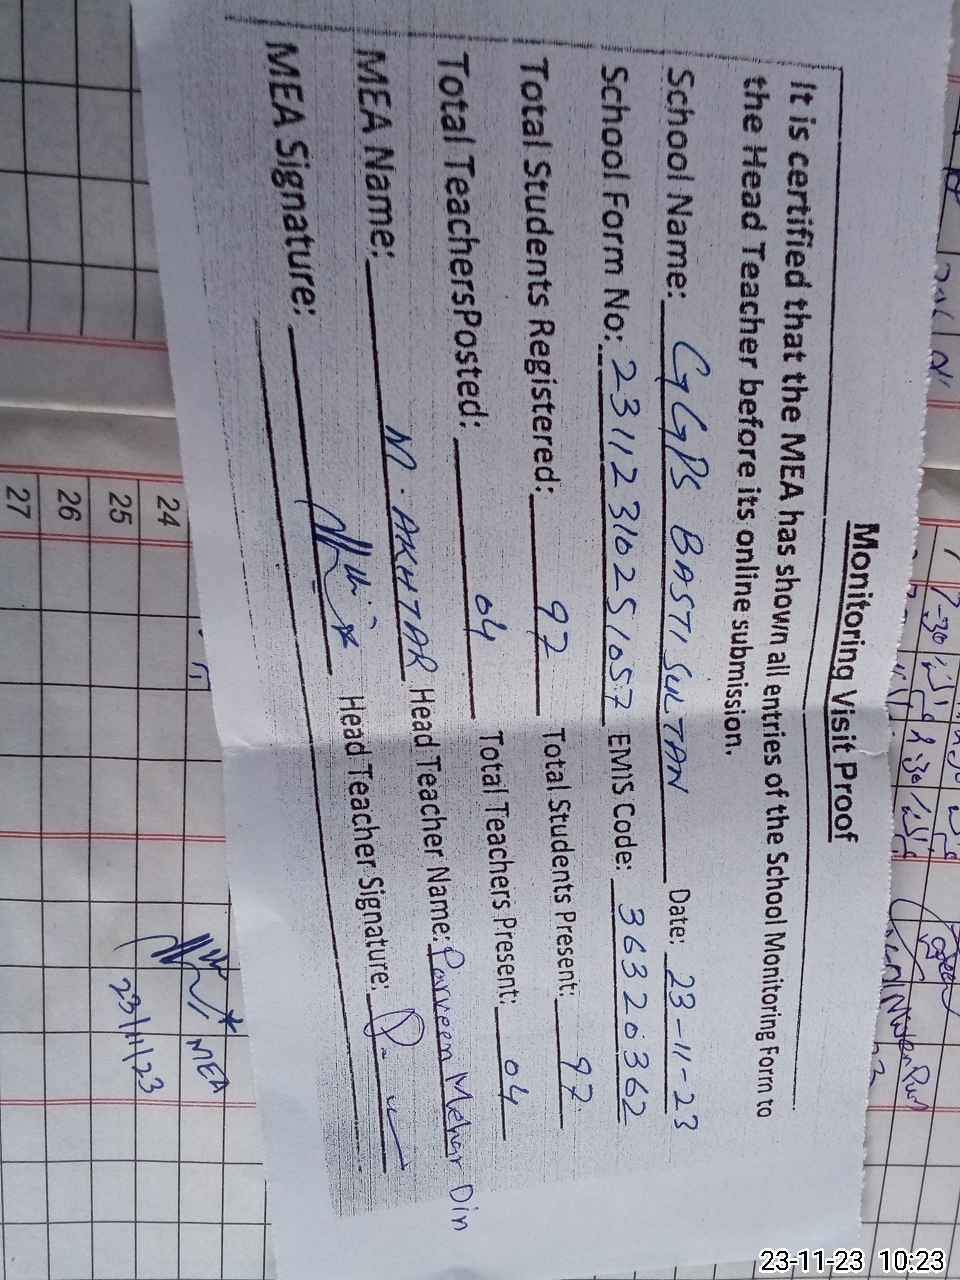 Monitoring Visit Proof
It is certified that the MEA has shown all entries of the School Monitoring Form to
the Head Teacher before its online submission.
School Name: GGPS BASTI SULTAN Date: 23-11-23
School Form No: 23112310251057 EMIS Code: 36320362
Total Students Registered: 97 Total Students Present: 97
Total TeachersPosted: 04 Total Teachers Present: 04
MEA Name: M. AKHTAR Head Teacher Name: Parveen Mehar Din
MEA Signature: Head Teacher Signature:
24
25
26
27
MEA
23/11/23
23-11-23 10:23